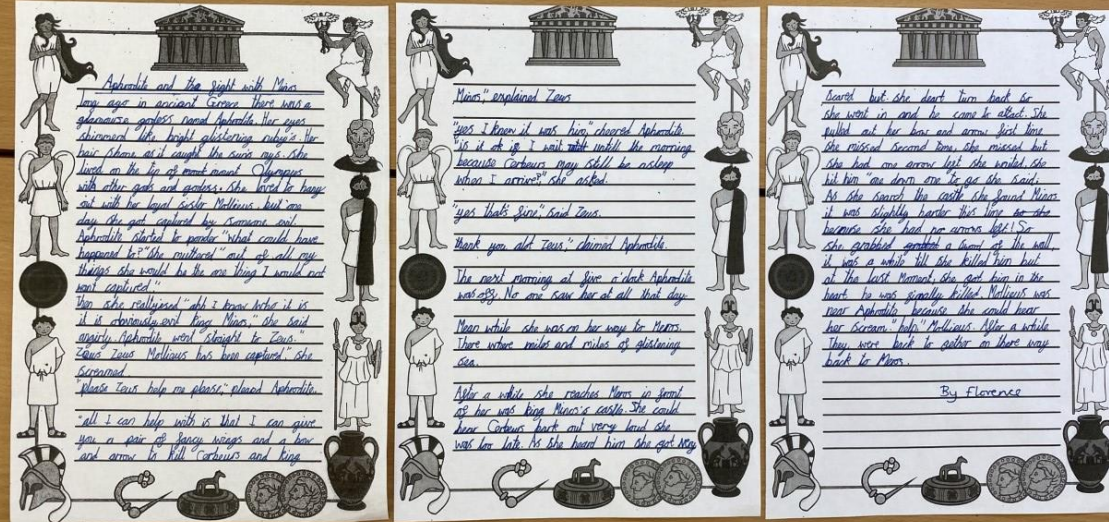 Aphrodite and the fight with Minos
long ago in ancient Greece there was a
glamourse godess named Aphrodite. Her eyes
shimmerd like bright glistening ruby's. Her
hair shone as it caught the suns rays. she
lived on the tip of mount Olympus
with other gods and godess. she loved to hang
out with her loyal sister Mollieus but one
day she got captured by someone evil.
Aphrodite started to ponder "what could have
happened to?" she muttered "out of all my
things she would be the one thing I would not
want captured."
Then she realysed "ah! I know who it is
it is obviously evil King Minos," she said
angirly. Aphrodite went straight to Zeus.
"Zeus Zeus Mollieus has been captured" she
screamed.
"please Zeus help me please," pleaed Aphrodite.
"all I can help with is that I can give
you a pair of fancy wings and a bow
and arrow to kill Corbeurs and king
Minos," explained Zeus
"yes I knew it was him," cheered Aphrodite.
"is it ok if I wait untill the morning
because Corbeurs may still be asleep
when I arrive?" she asked.
"yes that's fine," said Zeus.
thank you alot Zeus," claimed Aphrodite.
The next morning at five o'clock Aphrodite
was off. No one saw her at all that day.
Mean while she was on her way to Meros.
There where miles and miles of glistening
sea.
After a while she reaches Meros in front
of her was king Minos's castle. She could
hear Corbeurs bark out very loud she
was too late. As she heard him she got very
scared but she dearnt turn back so
she went in and he came to attact. She
pulled out her bow and arrow first time
she missed second time, she missed but
she had one arrow left she waited, she
hit him "one down one to go she said.
As she search the castle she found Minos
it was slightly harder this time
because she had no arrows left! So
she grabbed a sword of the wall,
it was a while till she killed him but
at the last moment, she got him in the
heart he was finally killed. Mollieus was
near Aphrodite because she could hear
her scream "help" Mollieus. After a while
They were back to gether on there way
back to Meros.
By Florence